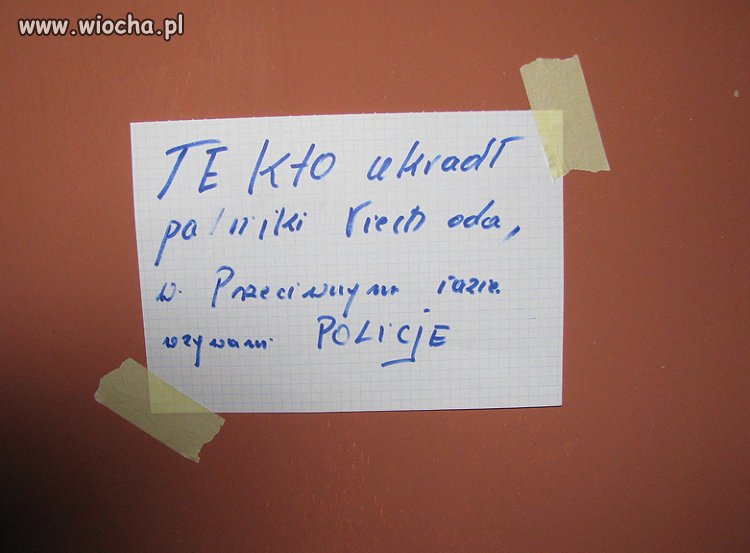 www.wiocha.pl
TE kto ukradł
palniki niech oda,
w Przeciwnym razie
wzywam POLICJE